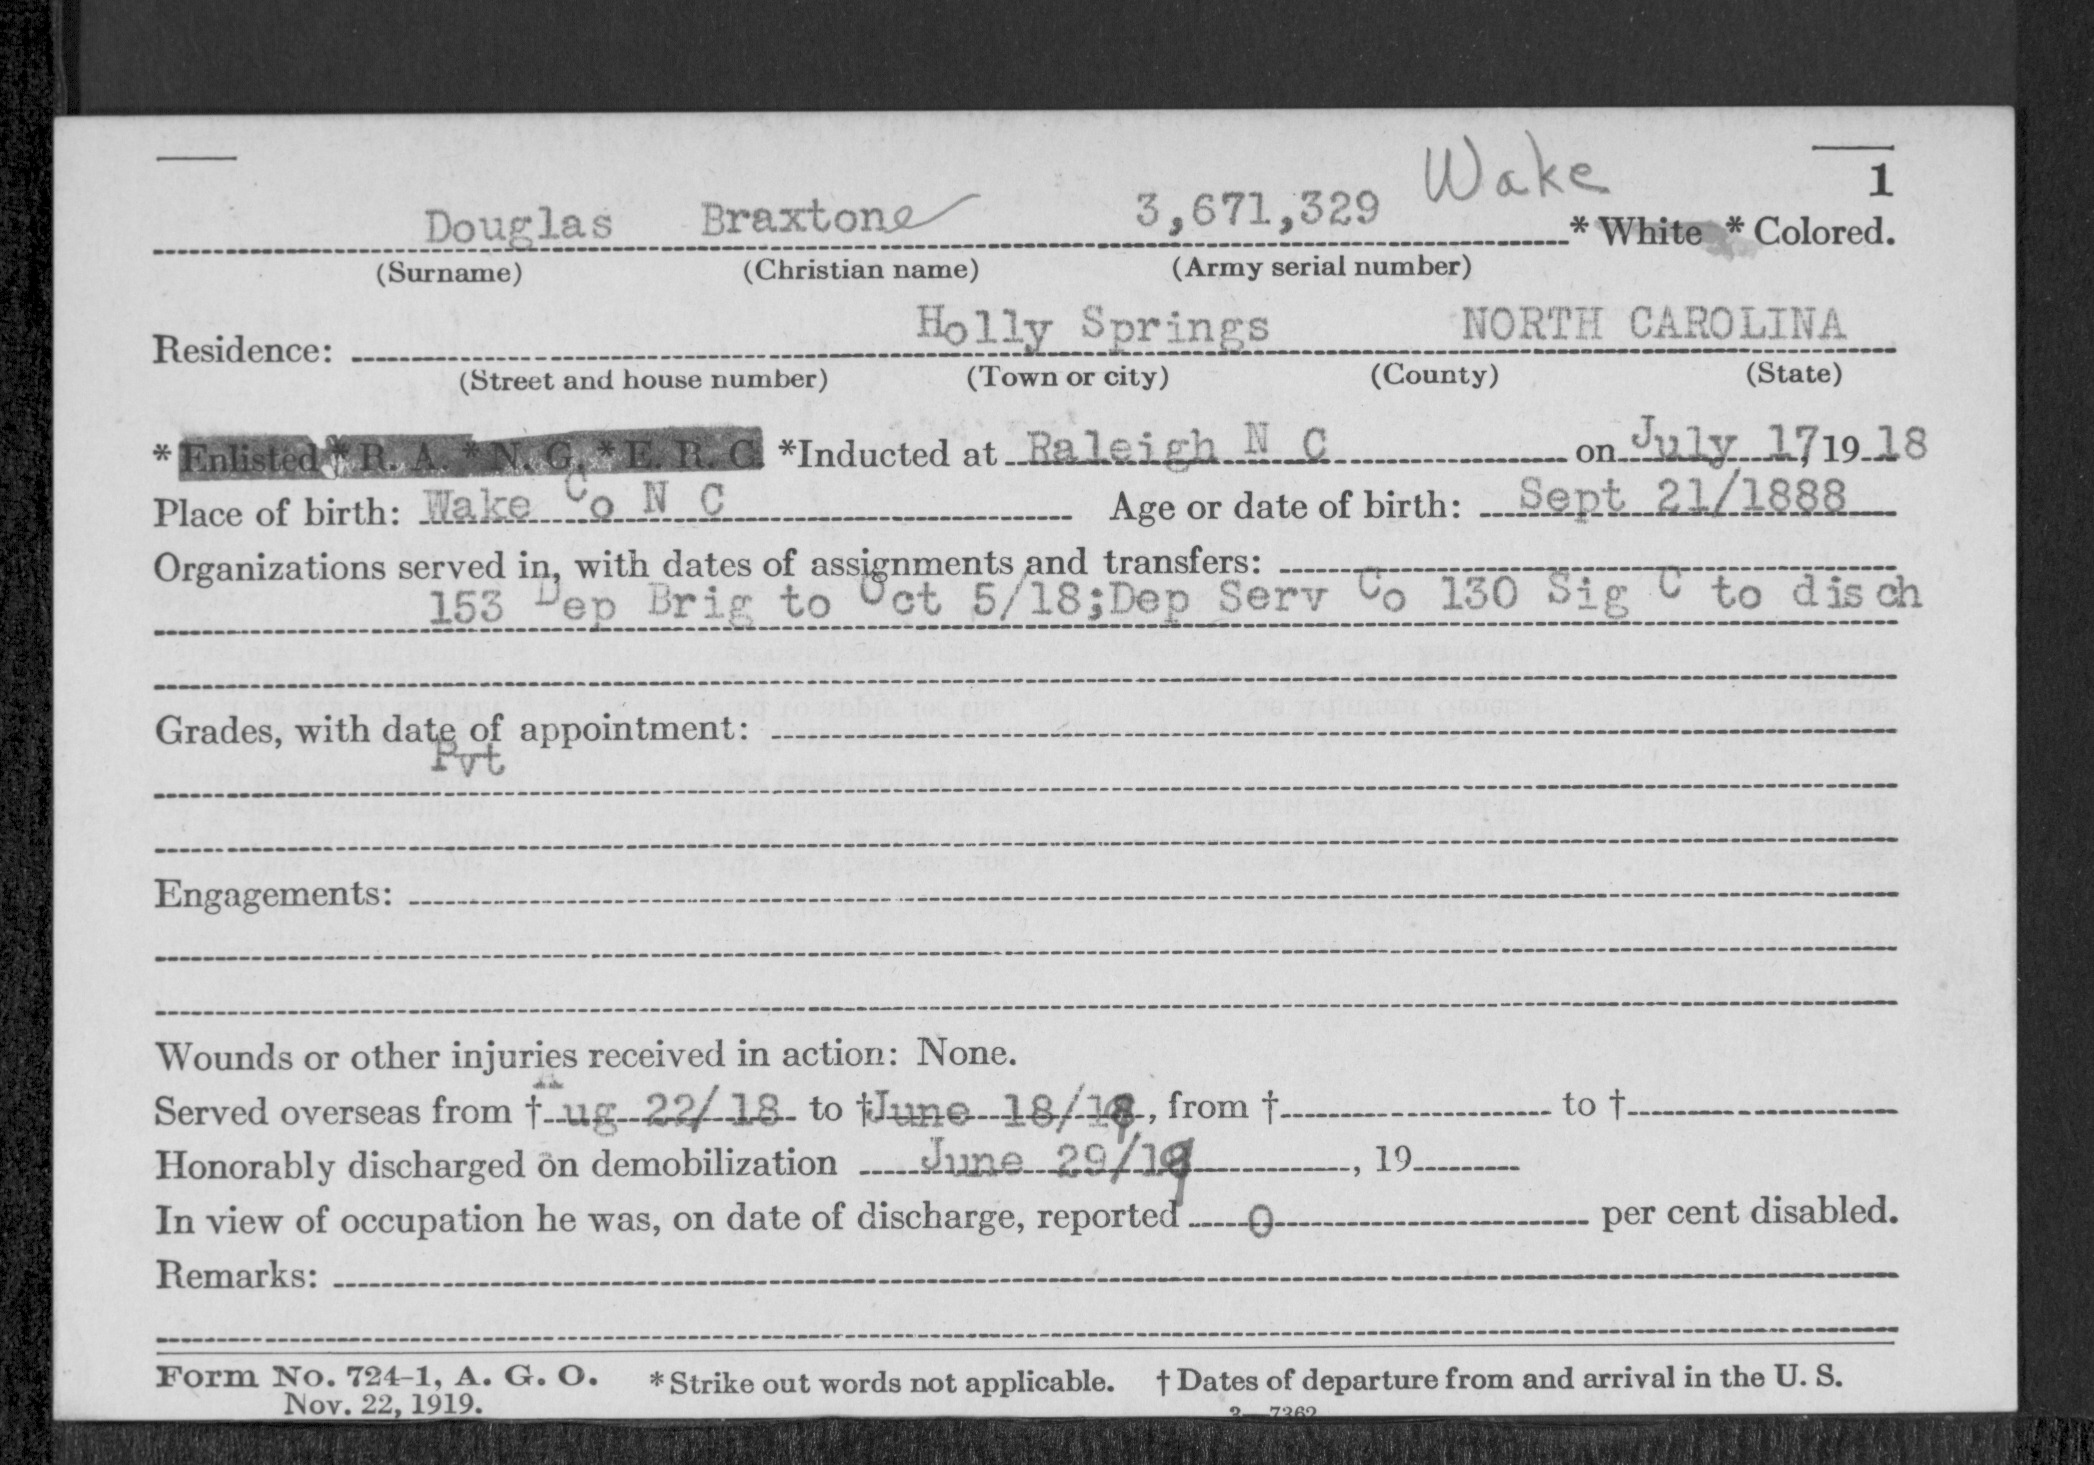 Wake
1
Douglas Braxtone 3,671,329 * White * Colored.
(Surname) (Christian name) (Army serial number)
Residence: Holly Springs NORTH CAROLINA
(Street and house number) (Town or city) (County) (State)
* Enlisted * R. A. * N. G. * E. R. C. *Inducted at Raleigh N C on July 17, 19 18
Place of birth: Wake Co N C Age or date of birth: Sept 21/1888
Organizations served in, with dates of assignments and transfers:
153 Dep Brig to Oct 5/18;Dep Serv Co 130 Sig C to disch
Grades, with date of appointment:
Pvt
Engagements:
Wounds or other injuries received in action: None.
Served overseas from † Aug 22/18 to † June 18/19, from † to †
Honorably discharged on demobilization June 29/19, 19
In view of occupation he was, on date of discharge, reported 0 per cent disabled.
Remarks:
Form No. 724-1, A. G. O. * Strike out words not applicable. † Dates of departure from and arrival in the U. S.
Nov. 22, 1919.
3—7362